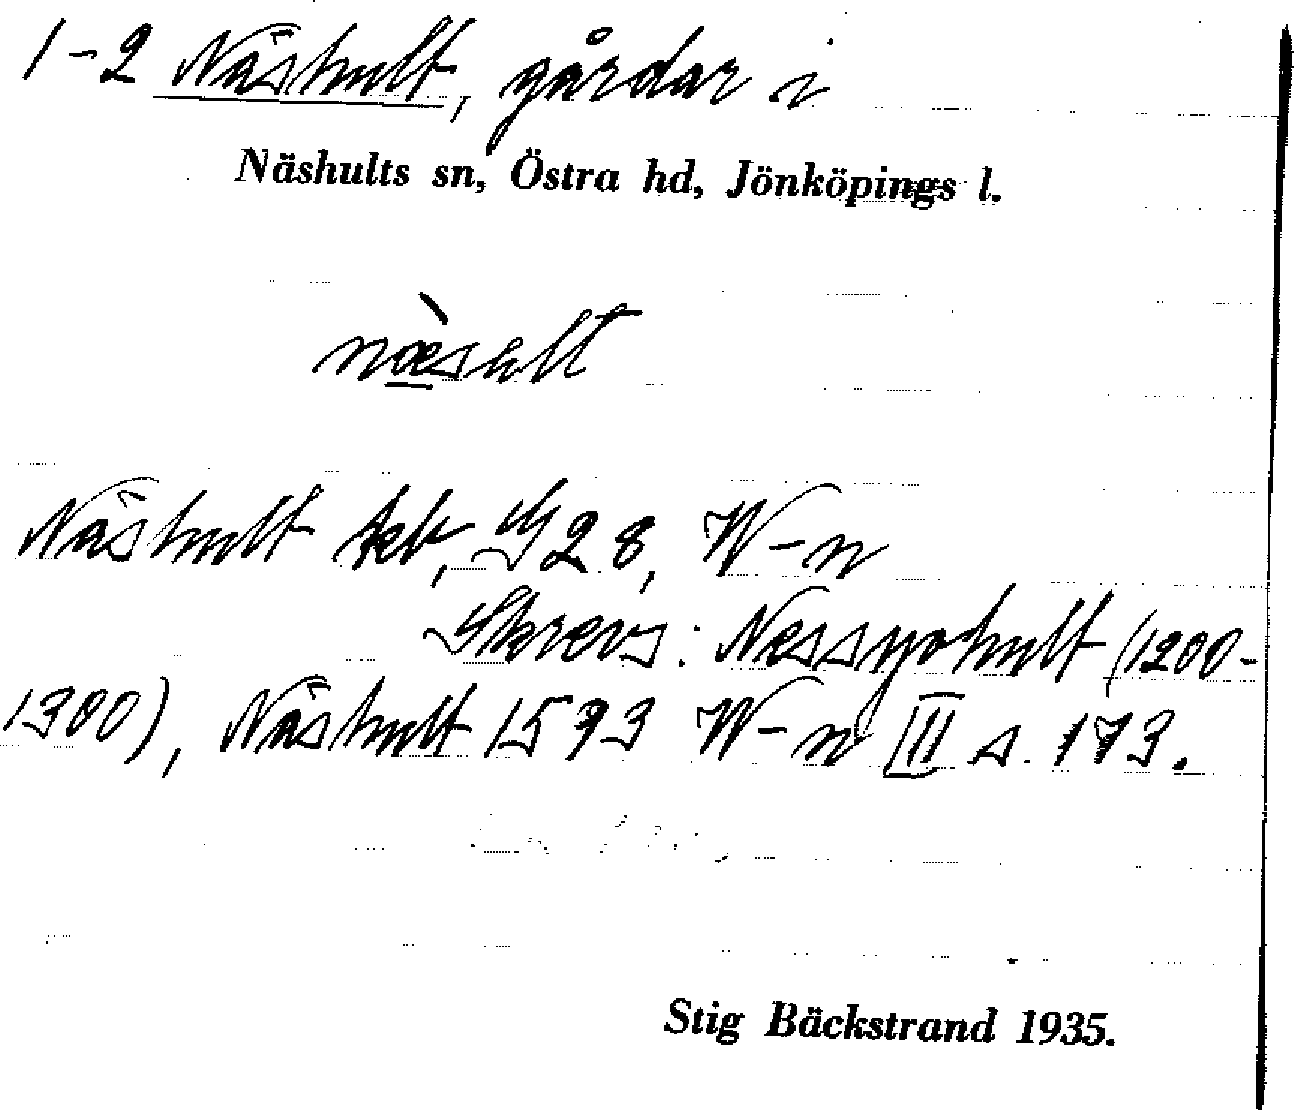 1-2 Näshult, gårdar i
Näshults sn, Östra hd, Jönköpings l.
Näshult W-n
Skrevs: Nessyohult (1200-
1300), Näshult 1593 W-n III s. 173.
Stig Bäckstrand 1935.